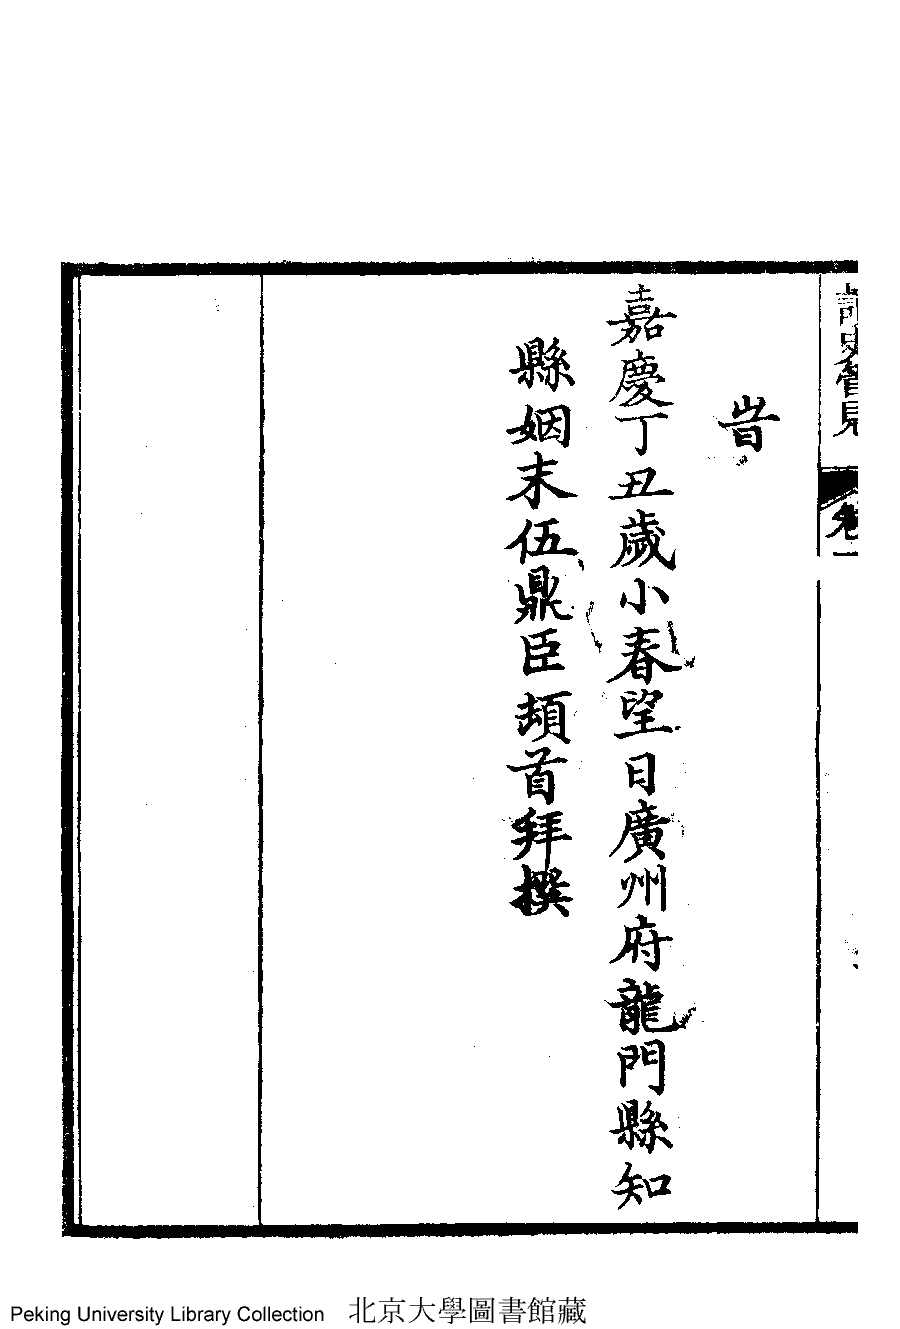 史管見 卷一
旹
嘉慶丁丑歲小春望日廣州府龍門縣知
縣姻末伍鼎臣頓首拜撰
Peking University Library Collection 北京大學圖書館藏